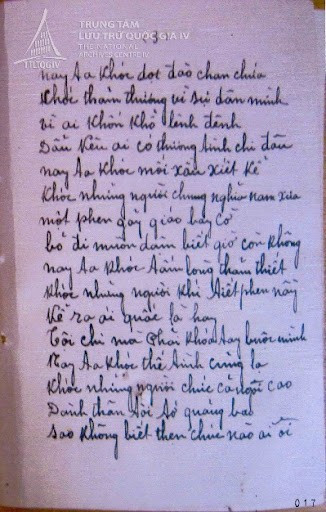 TRUNG TÂM
LƯU TRỮ QUỐC GIA IV
THE NATIONAL
ARCHIVES CENTRE IV
TTLTQG IV
nay ta khóc dọt đào chan chứa
Khóc thảm thương về sự dân mình
vì ai khốn khổ lênh đênh
Dẫu nếu ai có thương tình chi đâu
nay ta khóc mối xấu xiết kể
khóc những người chung nghĩa nam xưa
một phen gây giáo bây cờ
bỏ đi muôn dặm biết giờ còn không
nay ta khóc tấm lòng thảm thiết
khóc những người khi tiết phen nầy
kể ra ai quấc là hay
Tội chi mà phải khóa tay buộc mình
Nay ta khóc thế tình cũng lạ
khóc những người chúc cả ngôi cao
Dành thân tôi tớ quáng bao
sao không biết thẹn chúc nào ai ôi
017